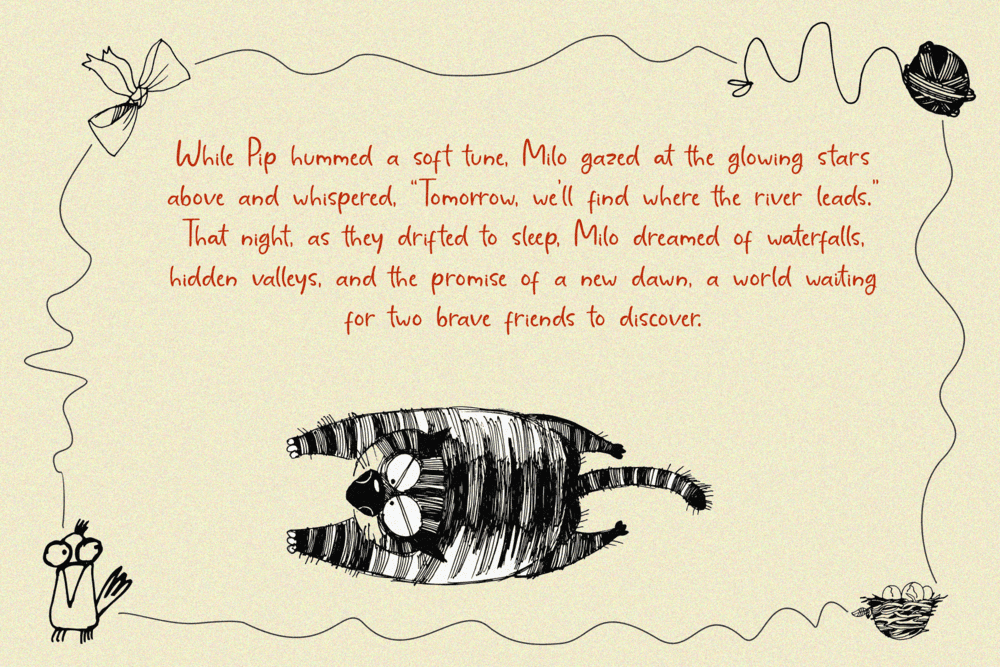 While Pip hummed a soft tune, Milo gazed at the glowing stars
above and whispered, “Tomorrow, we’ll find where the river leads.”
That night, as they drifted to sleep, Milo dreamed of waterfalls,
hidden valleys, and the promise of a new dawn, a world waiting
for two brave friends to discover.